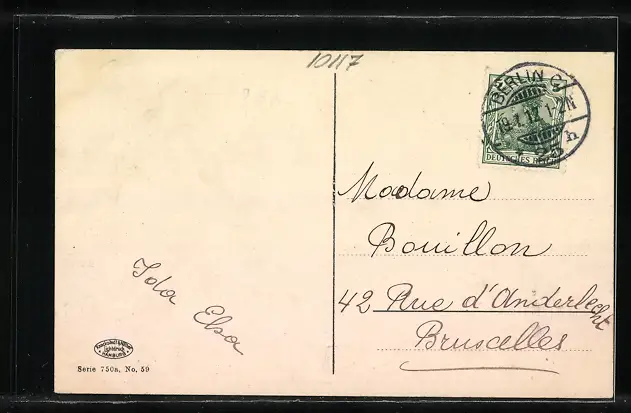 10117
BERLIN C
1-2N
* 25 h
DEUTSCHES REICH
Madame
Bouillon
42 Rue d'Anderlecht
Bruscelles
Ida Elsa
HAMBURG
Serie 750a, No. 59